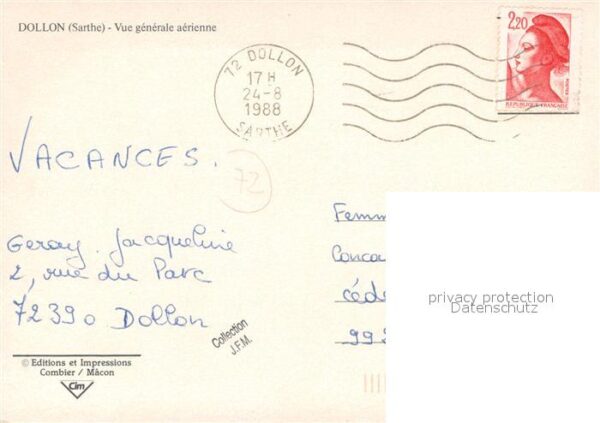 DOLLON (Sarthe) - Vue générale aérienne
2,20
REPUBLIQUE FRANÇAISE
72 DOLLON
17 H
24-8
1988
SARTHE
VACANCES.
72
Geray Jacqueline
2, rue du Parc
72390 Dollon
Femm
Conco
céde
992
privacy protection
Datenschutz
Collection
J.F.M.
© Editions et Impressions
Combier / Mâcon
Cim